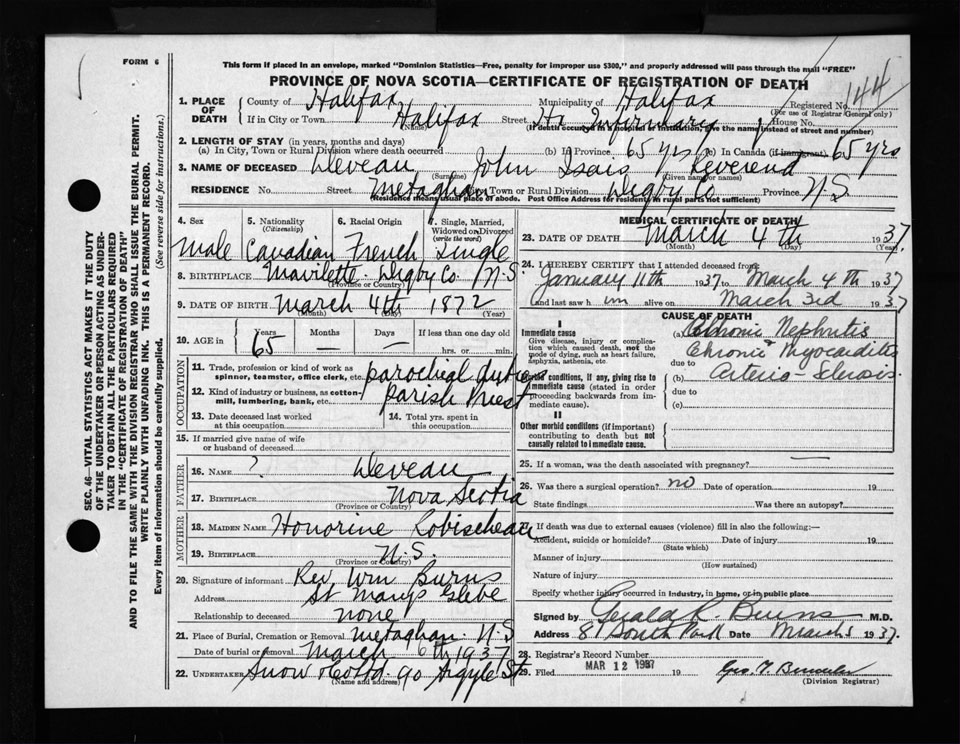 FORM 6
This form if placed in an envelope, marked "Dominion Statistics—Free, penalty for improper use $300," and properly addressed will pass through the mail "FREE"
PROVINCE OF NOVA SCOTIA—CERTIFICATE OF REGISTRATION OF DEATH
144
1. PLACE OF DEATH County of Halifax Municipality of Halifax Registered No.
(For use of Registrar General only)
If in City or Town Halifax Street Hx Infirmary House No.
(Name) (If death occurred in a hospital or institution, give the name instead of street and number)
2. LENGTH OF STAY (in years, months and days)
(a) In City, Town or Rural Division where death occurred (b) In Province 65 yrs (c) In Canada (if immigrant) 65 yrs
3. NAME OF DECEASED Deveau John Isaie Reverend
(Surname) (Given name or names)
RESIDENCE No. Street Metaghan City, Town or Rural Division Digby Co Province N.S
(Residence means usual place of abode. Post Office Address for residents in rural parts not sufficient)
4. Sex 5. Nationality (Citizenship) 6. Racial Origin 7. Single, Married, Widowed or Divorced (write the word)
Male Canadian French Single
8. BIRTHPLACE Mavilette Digby Co N.S.
(Province or Country)
9. DATE OF BIRTH March 4th 1872
(Month) (Day) (Year)
10. AGE in Years Months Days If less than one day old
65 — — hrs. or min.
OCCUPATION
11. Trade, profession or kind of work as spinner, teamster, office clerk, etc. parochial duties
12. Kind of industry or business, as cotton-mill, lumbering, bank, etc. Parish Priest
13. Date deceased last worked at this occupation
14. Total yrs. spent in this occupation
15. If married give name of wife or husband of deceased
FATHER
16. NAME ? Deveau
17. BIRTHPLACE Nova Scotia
(Province or Country)
MOTHER
18. MAIDEN NAME Honorine Robischeau
19. BIRTHPLACE N.S.
(Province or Country)
20. Signature of informant Rev Wm Burns
Address St Marys Glebe
Relationship to deceased none
21. Place of Burial, Cremation or Removal Metaghan N.S
Date of burial or removal March 6th 1937
22. UNDERTAKER Snow & Co Ltd. 90 Argyle St
(Name and address)
MEDICAL CERTIFICATE OF DEATH
23. DATE OF DEATH March 4th 1937
(Month) (Day) (Year)
24. I HEREBY CERTIFY that I attended deceased from
January 11th 1937 to March 4th 1937
and last saw him alive on March 3rd 1937
CAUSE OF DEATH
I
Immediate cause (a) Chronic Nephritis
Give disease, injury or complication which caused death, not the mode of dying, such as heart failure, asphyxia, asthenia, etc.
Chronic Myocarditis
due to Arterio Sclerosis
Morbid conditions, if any, giving rise to immediate cause (stated in order proceeding backwards from immediate cause).
(b)
due to
(c)
II
Other morbid conditions (if important) contributing to death but not causally related to immediate cause.
25. If a woman, was the death associated with pregnancy? —
26. Was there a surgical operation? no Date of operation 19
State findings Was there an autopsy?
27. If death was due to external causes (violence) fill in also the following:—
Accident, suicide or homicide? Date of injury 19
(State which)
Manner of injury
(How sustained)
Nature of injury
Specify whether injury occurred in industry, in home, or in public place
Signed by Gerald R. Burns M.D.
Address 81 South Park Date March 5 1937.
28. Registrar's Record Number
MAR 12 1937
29. Filed 19
(Division Registrar)
SEC. 46—VITAL STATISTICS ACT MAKES IT THE DUTY
OF THE UNDERTAKER OR PERSON ACTING AS UNDER-
TAKER TO OBTAIN ALL THE PARTICULARS REQUIRED
IN THE "CERTIFICATE OF REGISTRATION OF DEATH"
AND TO FILE THE SAME WITH THE DIVISION REGISTRAR WHO SHALL ISSUE THE BURIAL PERMIT.
WRITE PLAINLY WITH UNFADING INK. THIS IS A PERMANENT RECORD.
Every item of information should be carefully supplied. (See reverse side for instructions.)